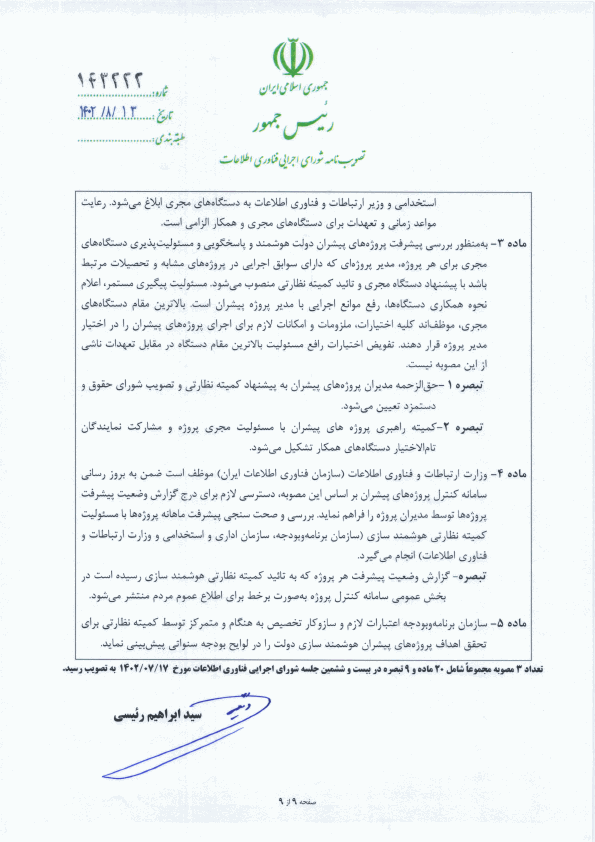 جمهوری اسلامی ایران
رئیس جمهور
تصویب نامه شورای اجرایی فناوری اطلاعات
شماره: ۱۴۳۲۲۲
تاریخ: ۱۴۰۲/۸/۱۳
طبقه بندی:
استخدامی و وزیر ارتباطات و فناوری اطلاعات به دستگاه‌های مجری ابلاغ می‌شود. رعایت
مواعد زمانی و تعهدات برای دستگاه‌های مجری و همکار الزامی است.
ماده ۳- به‌منظور بررسی پیشرفت پروژه‌های پیشران دولت هوشمند و پاسخگویی و مسئولیت‌پذیری دستگاه‌های
مجری برای هر پروژه، مدیر پروژه‌ای که دارای سوابق اجرایی در پروژه‌های مشابه و تحصیلات مرتبط
باشد با پیشنهاد دستگاه مجری و تائید کمیته نظارتی منصوب می‌شود. مسئولیت پیگیری مستمر، اعلام
نحوه همکاری دستگاه‌ها، رفع موانع اجرایی با مدیر پروژه پیشران است. بالاترین مقام دستگاه‌های
مجری، موظف‌اند کلیه اختیارات، ملزومات و امکانات لازم برای اجرای پروژه‌های پیشران را در اختیار
مدیر پروژه قرار دهند. تفویض اختیارات رافع مسئولیت بالاترین مقام دستگاه در مقابل تعهدات ناشی
از این مصوبه نیست.
تبصره ۱ -حق‌الزحمه مدیران پروژه‌های پیشران به پیشنهاد کمیته نظارتی و تصویب شورای حقوق و
دستمزد تعیین می‌شود.
تبصره ۲-کمیته راهبری پروژه های پیشران با مسئولیت مجری پروژه و مشارکت نمایندگان
تام‌الاختیار دستگاه‌های همکار تشکیل می‌شود.
ماده ۴- وزارت ارتباطات و فناوری اطلاعات (سازمان فناوری اطلاعات ایران) موظف است ضمن به بروز رسانی
سامانه کنترل پروژه‌های پیشران بر اساس این مصوبه، دسترسی لازم برای درج گزارش وضعیت پیشرفت
پروژه‌ها توسط مدیران پروژه را فراهم نماید. بررسی و صحت سنجی پیشرفت ماهانه پروژه‌ها با مسئولیت
کمیته نظارتی هوشمند سازی (سازمان برنامه‌وبودجه، سازمان اداری و استخدامی و وزارت ارتباطات و
فناوری اطلاعات) انجام می‌گیرد.
تبصره- گزارش وضعیت پیشرفت هر پروژه که به تائید کمیته نظارتی هوشمند سازی رسیده است در
بخش عمومی سامانه کنترل پروژه به‌صورت برخط برای اطلاع عموم مردم منتشر می‌شود.
ماده ۵- سازمان برنامه‌وبودجه اعتبارات لازم و سازوکار تخصیص به هنگام و متمرکز توسط کمیته نظارتی برای
تحقق اهداف پروژه‌های پیشران هوشمند سازی دولت را در لوایح بودجه سنواتی پیش‌بینی نماید.
تعداد ۳ مصوبه مجموعاً شامل ۲۰ ماده و ۹ تبصره در بیست و ششمین جلسه شورای اجرایی فناوری اطلاعات مورخ ۱۴۰۲/۰۷/۱۷ به تصویب رسید.
سید ابراهیم رئیسی
صفحه ۹ از ۹